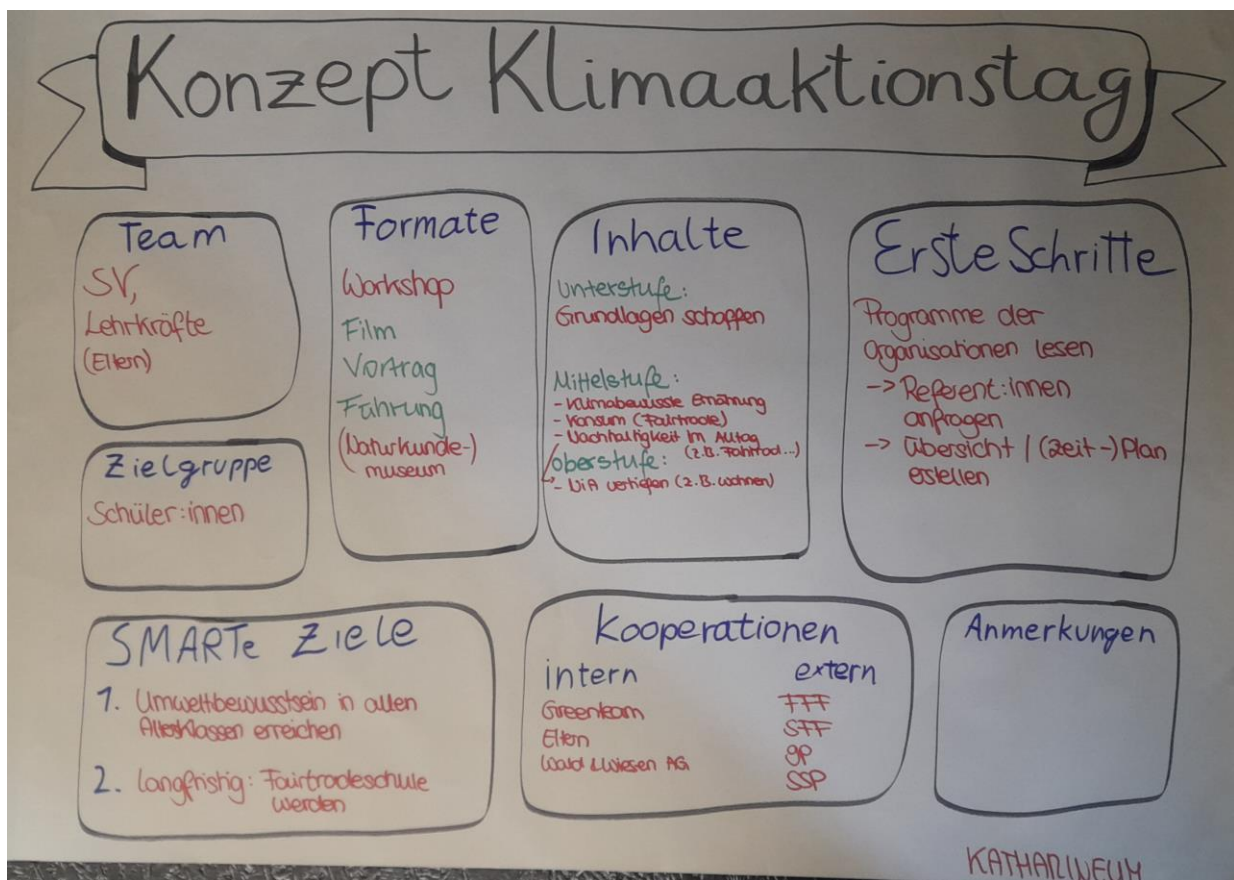 Konzept Klimaaktionstag
Team
SV,
Lehrkräfte
(Eltern)
Zielgruppe
Schüler:innen
Formate
Workshop
Film
Vortrag
Führung
(Naturkunde-)
museum
Inhalte
Unterstufe:
Grundlagen schaffen
Mittelstufe:
- Klimabewusste Ernährung
- Konsum (Fairtrade)
- Nachhaltigkeit im Alltag
(z.B. Fahrrad...)
Oberstufe:
- NiA vertiefen (z.B. wohnen)
Erste Schritte
Programme der
Organisationen lesen
-> Referent:innen
anfragen
-> Übersicht / (Zeit-)Plan
erstellen
SMARTe Ziele
1. Umweltbewusstsein in allen
Altersklassen erreichen
2. langfristig: Fairtradeschule
werden
Kooperationen
intern
Greenteam
Eltern
Wald & Wiesen AG
extern
FFF
SFF
GP
SSP
Anmerkungen
KATHARINEUM